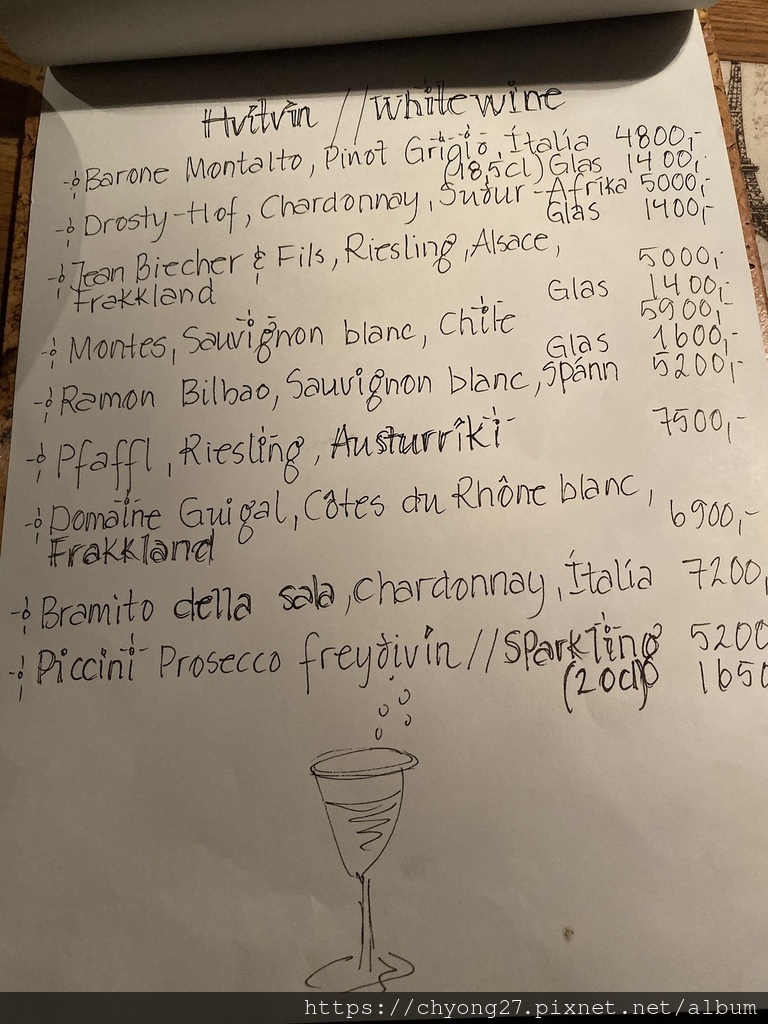 Hvítvín // white wine
Barone Montalto, Pinot Grigio, Ítalía 4800,-
(18,5cl) Glas 1400,-
Drosty-Hof, Chardonnay, Suður-Afrika 5000,-
Glas 1400,-
Jean Biecher & Fils, Riesling, Alsace,
Frakkland 5000,-
Glas 1400,-
Montes, Sauvignon blanc, Chile 5900,-
Glas 1600,-
Ramon Bilbao, Sauvignon blanc, Spánn 5200,-
Pfaffl, Riesling, Austurríki 7500,-
Domaine Guigal, Côtes du Rhône blanc,
Frakkland 6900,-
Bramito della sala, Chardonnay, Ítalía 7200,
Piccini Prosecco freyðivín // Sparkling 5200
(20cl) 1650
https://chyong27.pixnet.net/album